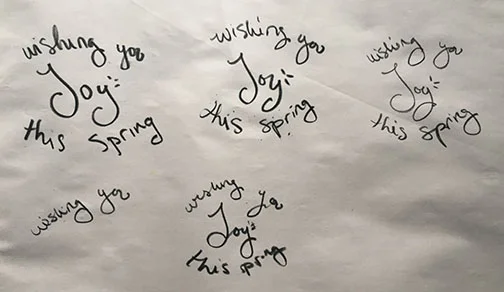 wishing you
Joy
this spring
wishing you
Joy
this spring
wishing you
Joy
this spring
wishing you
wishing you
Joy
this spring